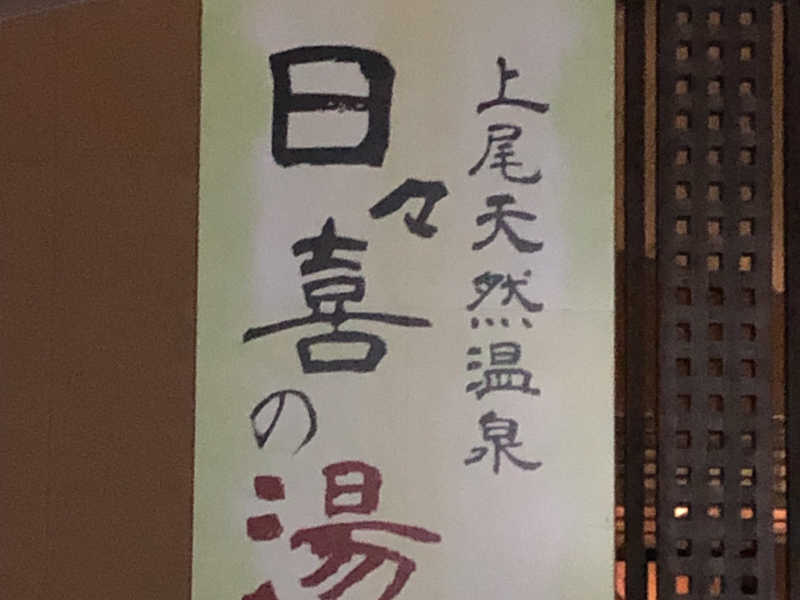 上尾天然温泉
日々喜の湯